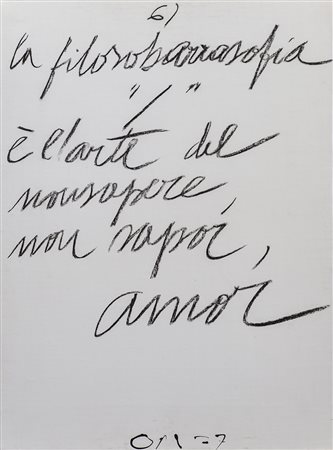 6)
la filosobarrasofia
"/"
è l'arte del
nonsapere,
non sapor,
amor